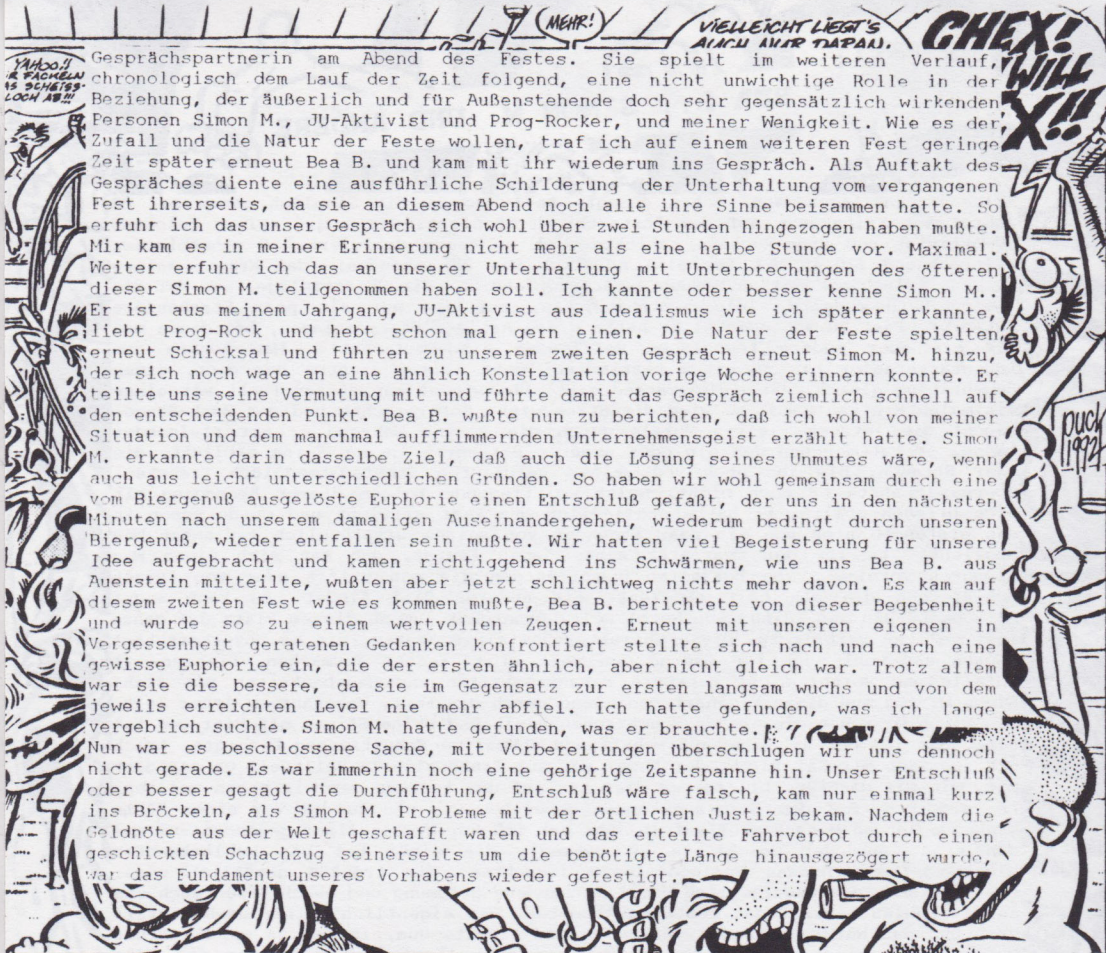 MEHR!
VIELLEICHT LIEGT'S
AUCH NUR DARAN,
CHEX!
WILL
X!!
YAHOO!!
R FACKELN
AS SCHEISS-
LOCH AB!!!
Gesprächspartnerin am Abend des Festes. Sie spielt im weiteren Verlauf,
chronologisch dem Lauf der Zeit folgend, eine nicht unwichtige Rolle in der
Beziehung, der äußerlich und für Außenstehende doch sehr gegensätzlich wirkenden
Personen Simon M., JU-Aktivist und Prog-Rocker, und meiner Wenigkeit. Wie es der
Zufall und die Natur der Feste wollen, traf ich auf einem weiteren Fest geringe
Zeit später erneut Bea B. und kam mit ihr wiederum ins Gespräch. Als Auftakt des
Gespräches diente eine ausführliche Schilderung der Unterhaltung vom vergangenen
Fest ihrerseits, da sie an diesem Abend noch alle ihre Sinne beisammen hatte. So
erfuhr ich das unser Gespräch sich wohl über zwei Stunden hingezogen haben mußte.
Mir kam es in meiner Erinnerung nicht mehr als eine halbe Stunde vor. Maximal.
Weiter erfuhr ich das an unserer Unterhaltung mit Unterbrechungen des öfteren
dieser Simon M. teilgenommen haben soll. Ich kannte oder besser kenne Simon M..
Er ist aus meinem Jahrgang, JU-Aktivist aus Idealismus wie ich später erkannte,
liebt Prog-Rock und hebt schon mal gern einen. Die Natur der Feste spielten
erneut Schicksal und führten zu unserem zweiten Gespräch erneut Simon M. hinzu,
der sich noch wage an eine ähnlich Konstellation vorige Woche erinnern konnte. Er
teilte uns seine Vermutung mit und führte damit das Gespräch ziemlich schnell auf
den entscheidenden Punkt. Bea B. wußte nun zu berichten, daß ich wohl von meiner
Situation und dem manchmal aufflimmernden Unternehmensgeist erzählt hatte. Simon
M. erkannte darin dasselbe Ziel, daß auch die Lösung seines Unmutes wäre, wenn
auch aus leicht unterschiedlichen Gründen. So haben wir wohl gemeinsam durch eine
vom Biergenuß ausgelöste Euphorie einen Entschluß gefaßt, der uns in den nächsten
Minuten nach unserem damaligen Auseinandergehen, wiederum bedingt durch unseren
Biergenuß, wieder entfallen sein mußte. Wir hatten viel Begeisterung für unsere
Idee aufgebracht und kamen richtiggehend ins Schwärmen, wie uns Bea B. aus
Auenstein mitteilte, wußten aber jetzt schlichtweg nichts mehr davon. Es kam auf
diesem zweiten Fest wie es kommen mußte, Bea B. berichtete von dieser Begebenheit
und wurde so zu einem wertvollen Zeugen. Erneut mit unseren eigenen in
Vergessenheit geratenen Gedanken konfrontiert stellte sich nach und nach eine
gewisse Euphorie ein, die der ersten ähnlich, aber nicht gleich war. Trotz allem
war sie die bessere, da sie im Gegensatz zur ersten langsam wuchs und von dem
jeweils erreichten Level nie mehr abfiel. Ich hatte gefunden, was ich lange
vergeblich suchte. Simon M. hatte gefunden, was er brauchte.
Nun war es beschlossene Sache, mit Vorbereitungen überschlugen wir uns dennoch
nicht gerade. Es war immerhin noch eine gehörige Zeitspanne hin. Unser Entschluß
oder besser gesagt die Durchführung, Entschluß wäre falsch, kam nur einmal kurz
ins Bröckeln, als Simon M. Probleme mit der örtlichen Justiz bekam. Nachdem die
Geldnöte aus der Welt geschafft waren und das erteilte Fahrverbot durch einen
geschickten Schachzug seinerseits um die benötigte Länge hinausgezögert wurde,
war das Fundament unseres Vorhabens wieder gefestigt.
puck
1992